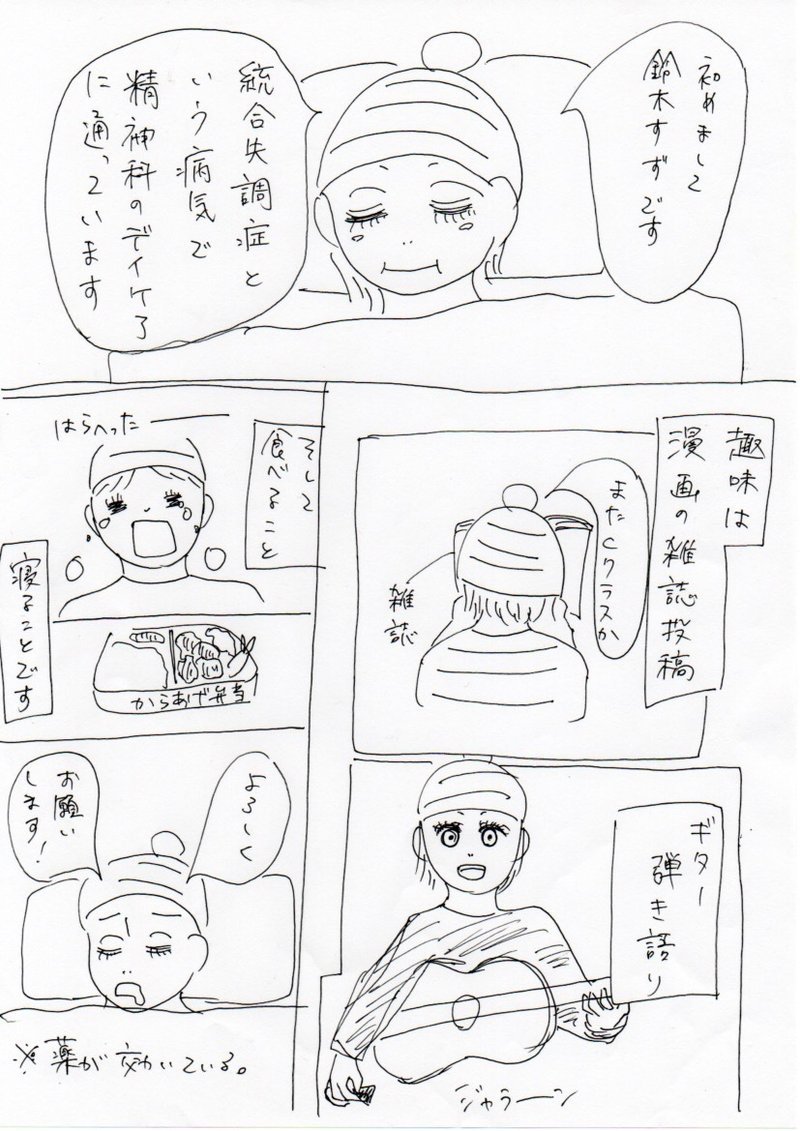 初めまして
鈴木すずです
統合失調症と
いう病気で
精神科のデイケア
に通っています
趣味は
漫画の雑誌投稿
またCクラスか
雑誌
ギター
弾き語り
ジャラーン
そして
食べること
はらへったー
からあげ弁当
寝ることです
よろしく
お願い
します!
※薬が効いている。